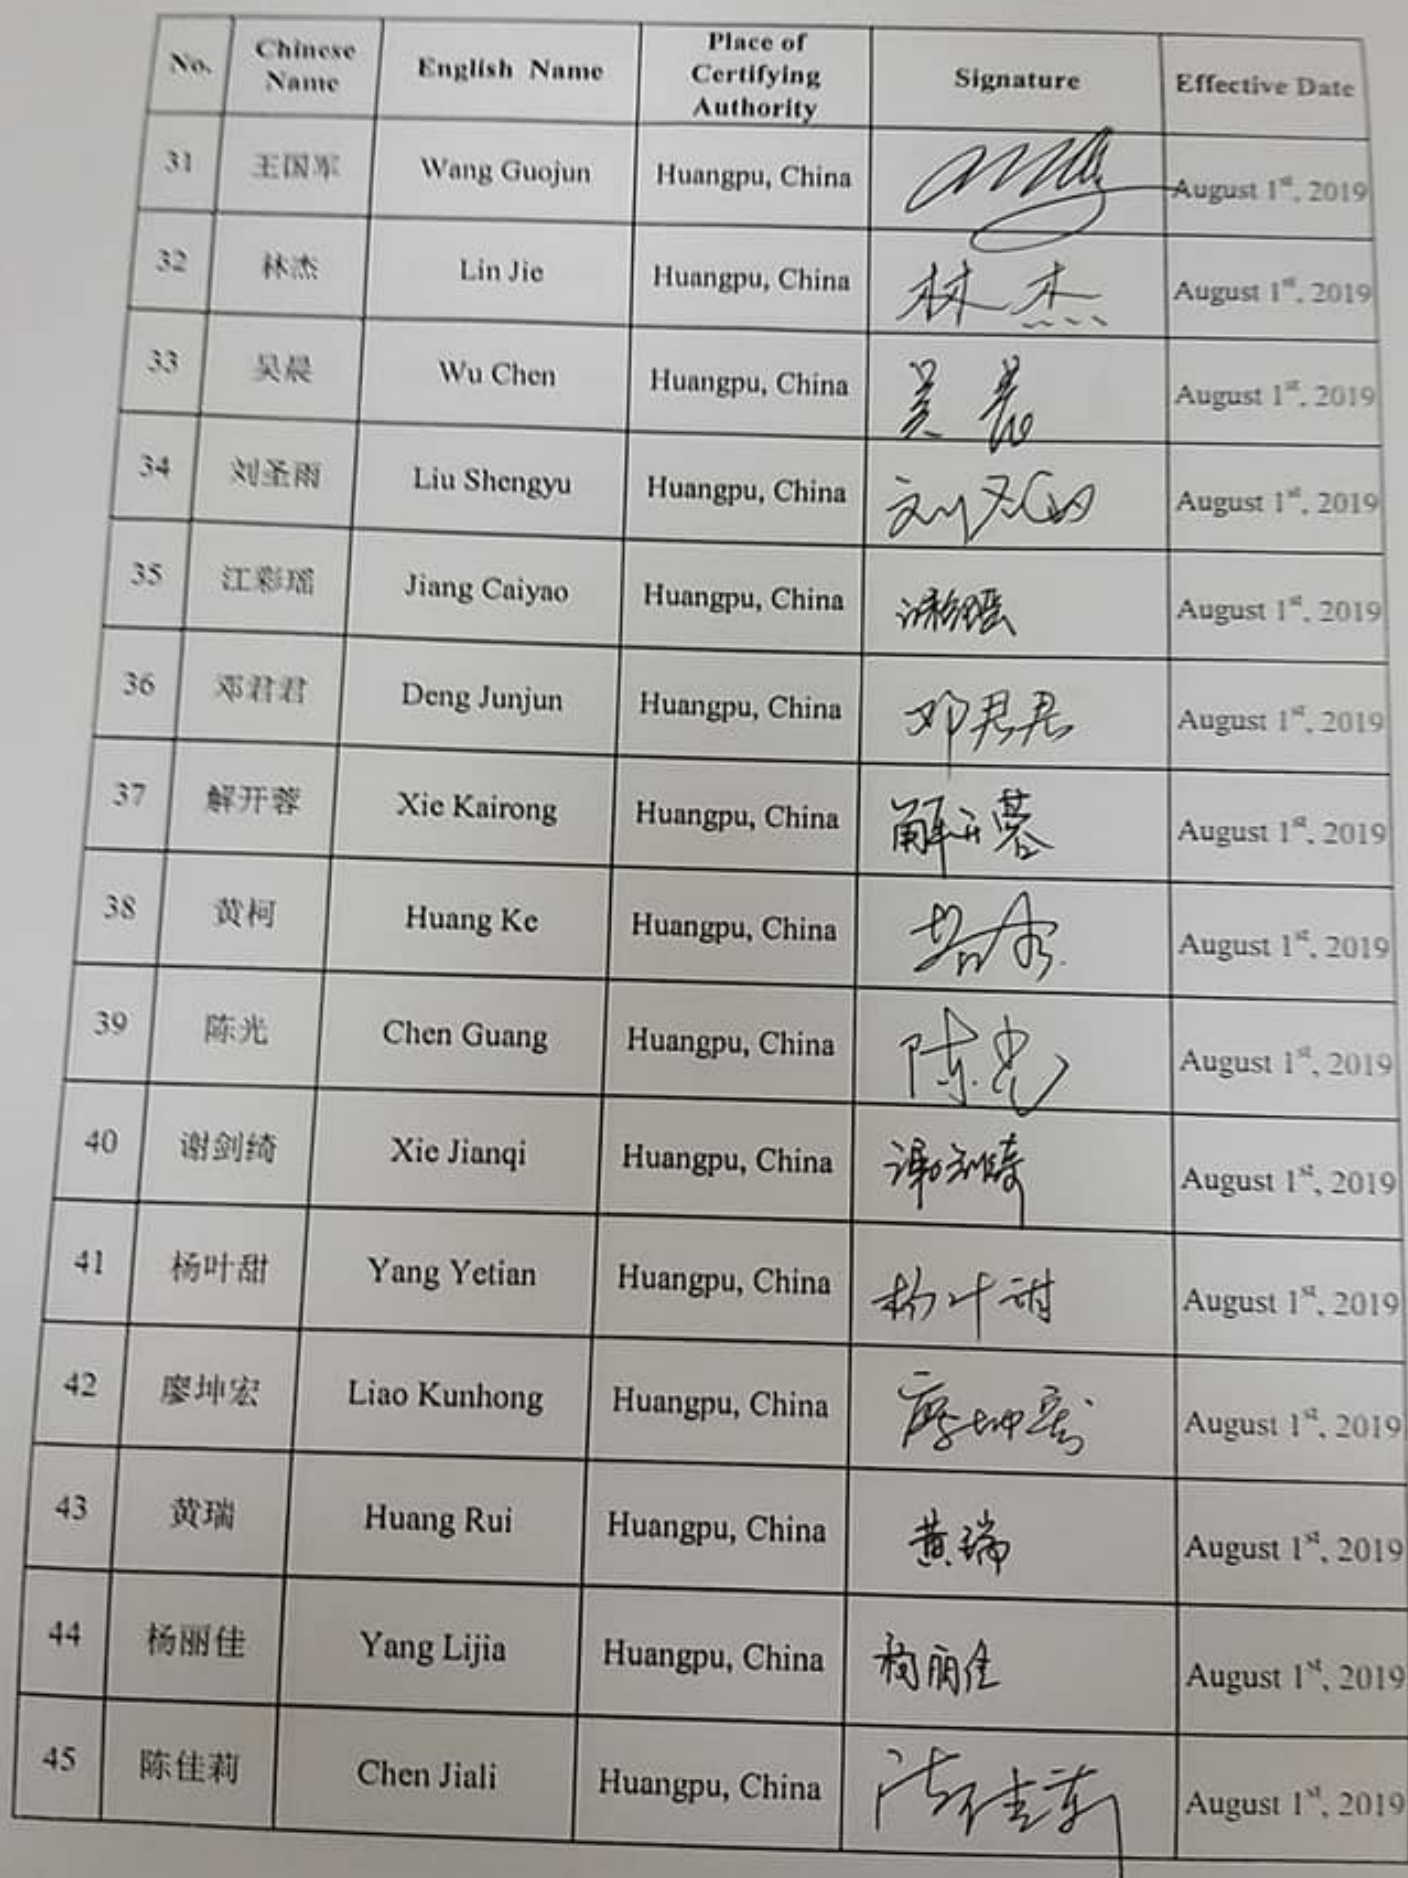 No. Chinese Name English Name Place of Certifying Authority Signature Effective Date
31 王国军 Wang Guojun Huangpu, China August 1st, 2019
32 林杰 Lin Jie Huangpu, China 林杰 August 1st, 2019
33 吴晨 Wu Chen Huangpu, China 吴晨 August 1st, 2019
34 刘圣雨 Liu Shengyu Huangpu, China August 1st, 2019
35 江彩瑶 Jiang Caiyao Huangpu, China August 1st, 2019
36 邓君君 Deng Junjun Huangpu, China 邓君君 August 1st, 2019
37 解开蓉 Xie Kairong Huangpu, China 解开蓉 August 1st, 2019
38 黄柯 Huang Ke Huangpu, China August 1st, 2019
39 陈光 Chen Guang Huangpu, China 陈光 August 1st, 2019
40 谢剑绮 Xie Jianqi Huangpu, China 谢剑绮 August 1st, 2019
41 杨叶甜 Yang Yetian Huangpu, China 杨叶甜 August 1st, 2019
42 廖坤宏 Liao Kunhong Huangpu, China 廖坤宏 August 1st, 2019
43 黄瑞 Huang Rui Huangpu, China 黄瑞 August 1st, 2019
44 杨丽佳 Yang Lijia Huangpu, China 杨丽佳 August 1st, 2019
45 陈佳莉 Chen Jiali Huangpu, China 陈佳莉 August 1st, 2019